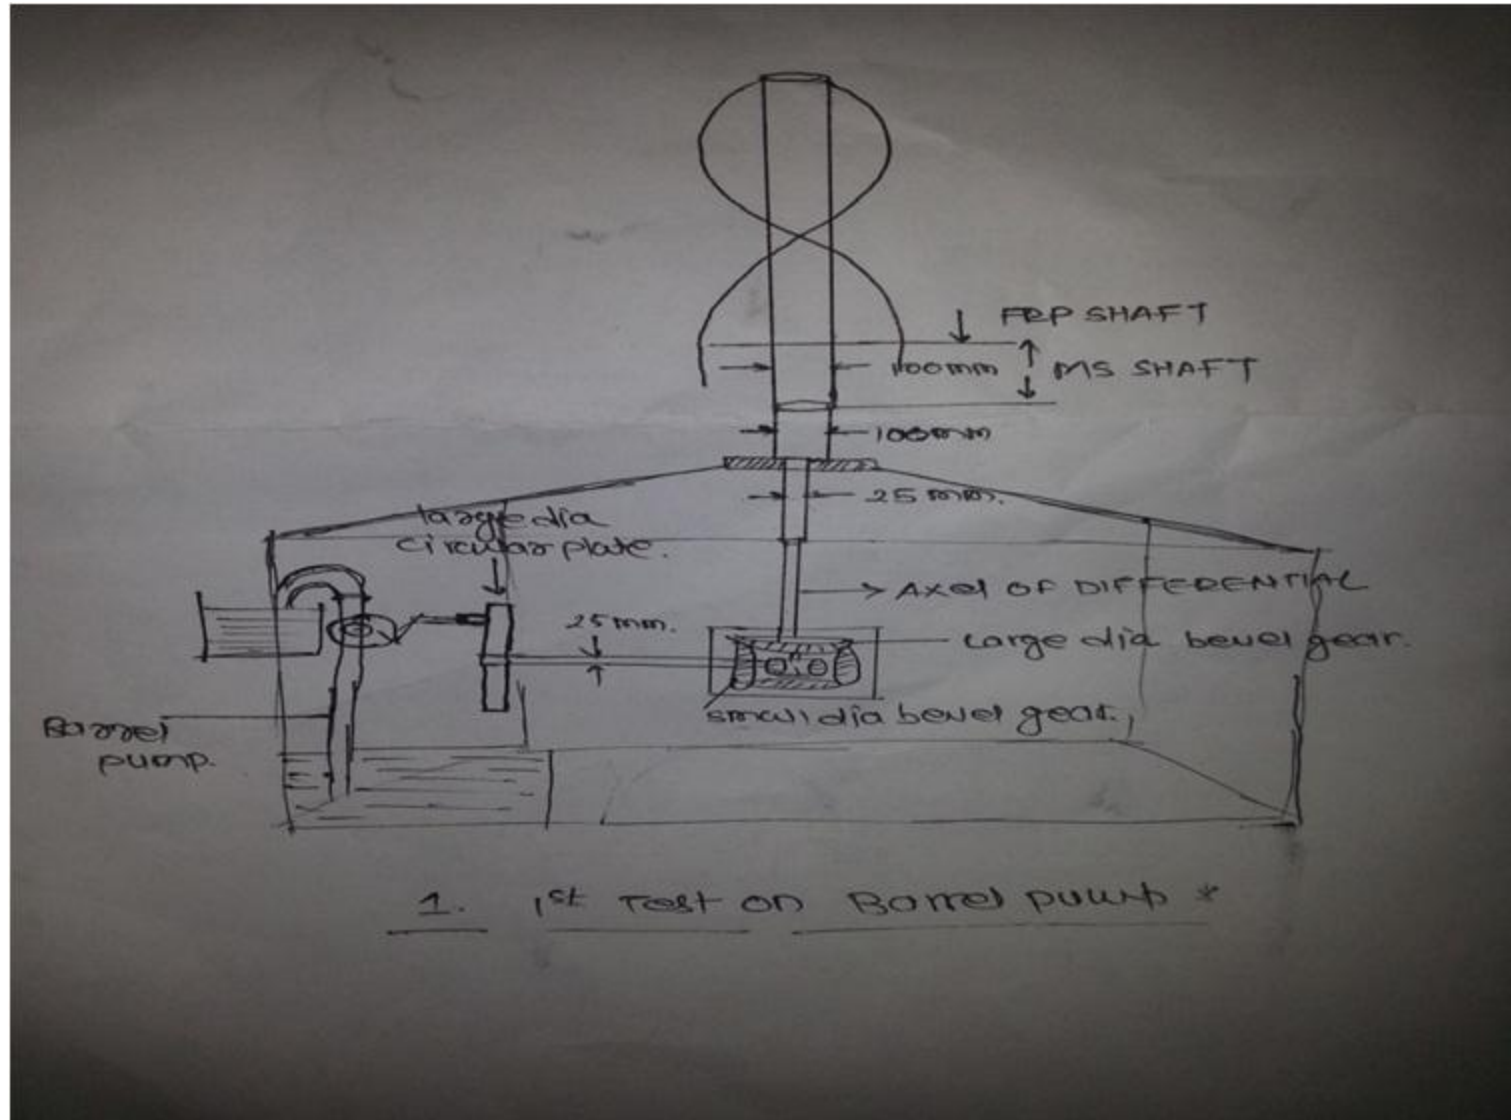 FRP SHAFT
100mm
MS SHAFT
100mm
25 mm.
large dia
circular plate.
AXel OF DIFFERENTIAL
25 mm.
Large dia bevel gear.
small dia bevel gear.
Barrel
pump.
1. 1st Test on Barrel pump *